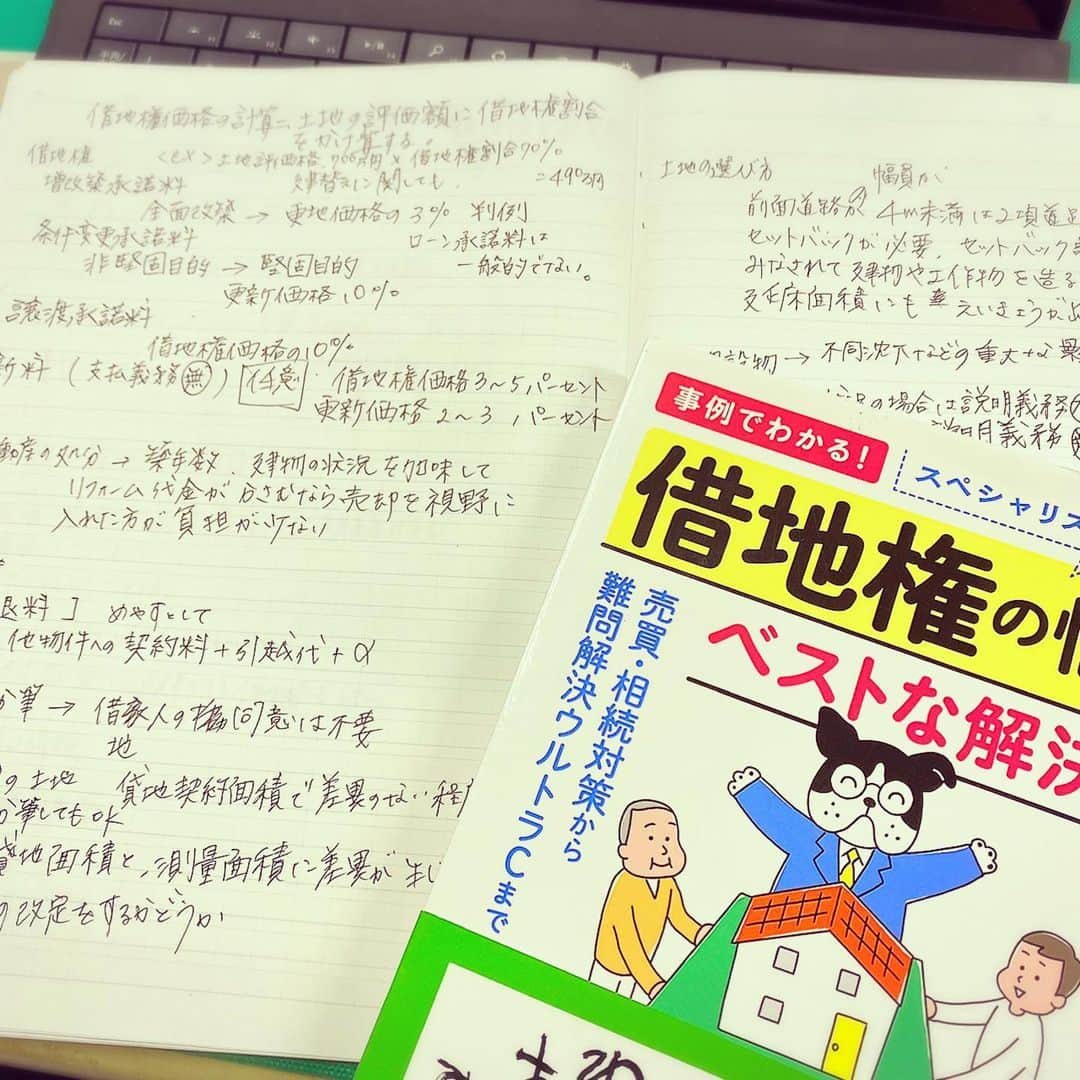 借地権価格の計算=、土地の評価額に借地権割合
をかけ算する。
借地権 <ex>土地評価格 700万円×借地権割合70%
増改築承諾料 建替えに関しても. =490万円
全面改築 → 更地価格の3% 判例
条件変更承諾料 ローン承諾料は
非堅固目的 → 堅固目的 一般的でない。
更新価格10%
譲渡承諾料
借地権価格の10%
新料(支払義務無)任意・借地権価格3~5パーセント
更新価格2~3パーセント
動産の処分 → 築年数、建物の状況を加味して
リフォーム代金がかさむなら売却を視野に
入れた方が負担が少ない
退料] めやすとして
他物件への契約料+引越代+α
筆 → 借家人の同意は不要
地
の土地 貸地契約面積で差異のない程
筆してもOK
貸地面積と、測量面積に差異が生じ
の改定をするかどうか
土地の選び方 幅員が
前面道路の4m未満は2項道
セットバックが必要、セットバック
みなされて建物や工作物を造る
延床面積にも えいきょうが
設物 → 不同沈下などの重大な
の場合は説明義務
説明義務
事例でわかる!
スペシャリス
借地権の
ベストな解決
売買・相続対策から
難問解決ウルトラCまで
土地